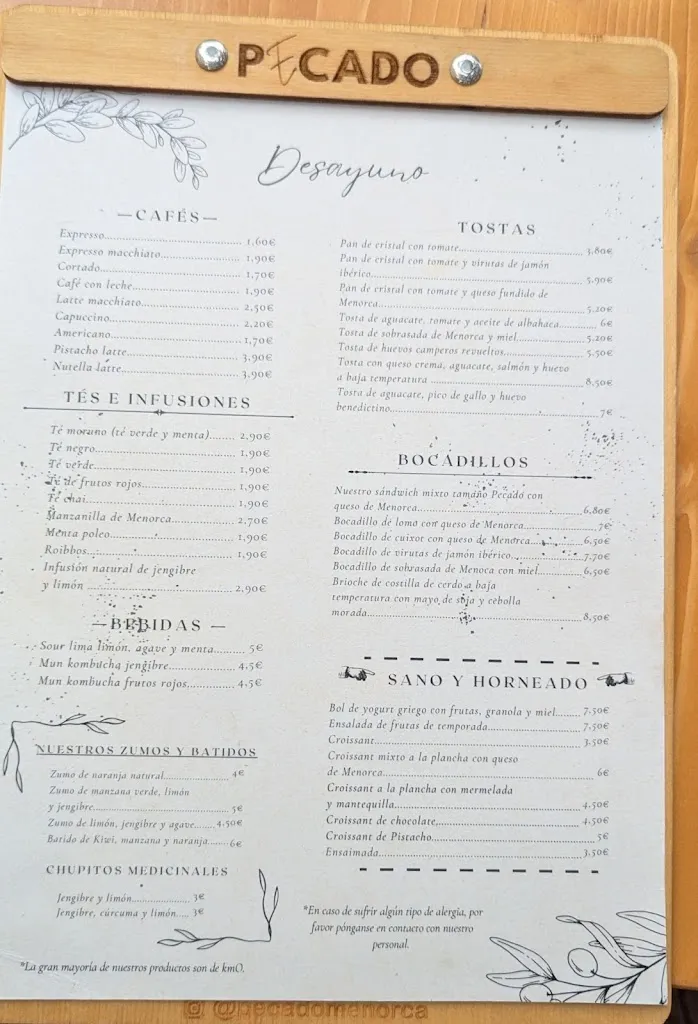 PECADO
Desayuno
—CAFÉS—
Expresso........ 1,60€
Expresso macchiato........ 1,90€
Cortado........ 1,70€
Café con leche........ 1,90€
Latte macchiato........ 2,50€
Capuccino........ 2,20€
Americano........ 1,70€
Pistacho latte........ 3,90€
Nutella latte........ 3,90€
TÉS E INFUSIONES
Té moruno (té verde y menta)....... 2,90€
Té negro........ 1,90€
Té verde........ 1,90€
Té de frutos rojos........ 1,90€
Té chai........ 1,90€
Manzanilla de Menorca........ 2,70€
Menta poleo........ 1,90€
Roibbos........ 1,90€
Infusión natural de jengibre
y limón ........ 2,90€
— BEBIDAS —
Sour lima limón, agave y menta........ 5€
Mun kombucha jengibre........ 4,5€
Mun kombucha frutos rojos........ 4,5€
NUESTROS ZUMOS Y BATIDOS
Zumo de naranja natural........ 4€
Zumo de manzana verde, limón
y jengibre........ 5€
Zumo de limón, jengibre y agave..... 4,50€
Batido de Kiwi, manzana y naranja...... 6€
CHUPITOS MEDICINALES
Jengibre y limón........ 3€
Jengibre, cúrcuma y limón.... 3€
*La gran mayoría de nuestros productos son de km0.
TOSTAS
Pan de cristal con tomate........ 3,80€
Pan de cristal con tomate y virutas de jamón
ibérico........ 5,90€
Pan de cristal con tomate y queso fundido de
Menorca........ 5,20€
Tosta de aguacate, tomate y aceite de albahaca........ 6€
Tosta de sobrasada de Menorca y miel........ 5,20€
Tosta de huevos camperos revueltos........ 5,50€
Tosta con queso crema, aguacate, salmón y huevo
a baja temperatura ........ 8,50€
Tosta de aguacate, pico de gallo y huevo
benedictino........ 7€
BOCADILLOS
Nuestro sándwich mixto tamaño Pecado con
queso de Menorca........ 6,80€
Bocadillo de lomo con queso de Menorca........ 7€
Bocadillo de cuixot con queso de Menorca........ 6,50€
Bocadillo de virutas de jamón ibérico........ 7,70€
Bocadillo de sobrasada de Menoca con miel........ 6,50€
Brioche de costilla de cerdo a baja
temperatura con mayo de soja y cebolla
morada........ 8,50€
SANO Y HORNEADO
Bol de yogurt griego con frutas, granola y miel........ 7,50€
Ensalada de frutas de temporada........ 7,50€
Croissant........ 3,50€
Croissant mixto a la plancha con queso
de Menorca........ 6€
Croissant a la plancha con mermelada
y mantequilla........ 4,50€
Croissant de chocolate........ 4,50€
Croissant de Pistacho........ 5€
Ensaimada........ 3,50€
*En caso de sufrir algún tipo de alergía, por
favor pónganse en contacto con nuestro
personal.
@pecadomenorca